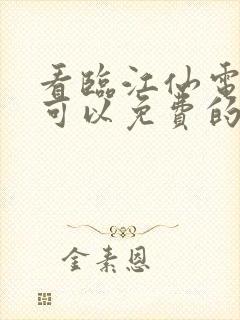 看臨江仙電
可以免費的
金素恩